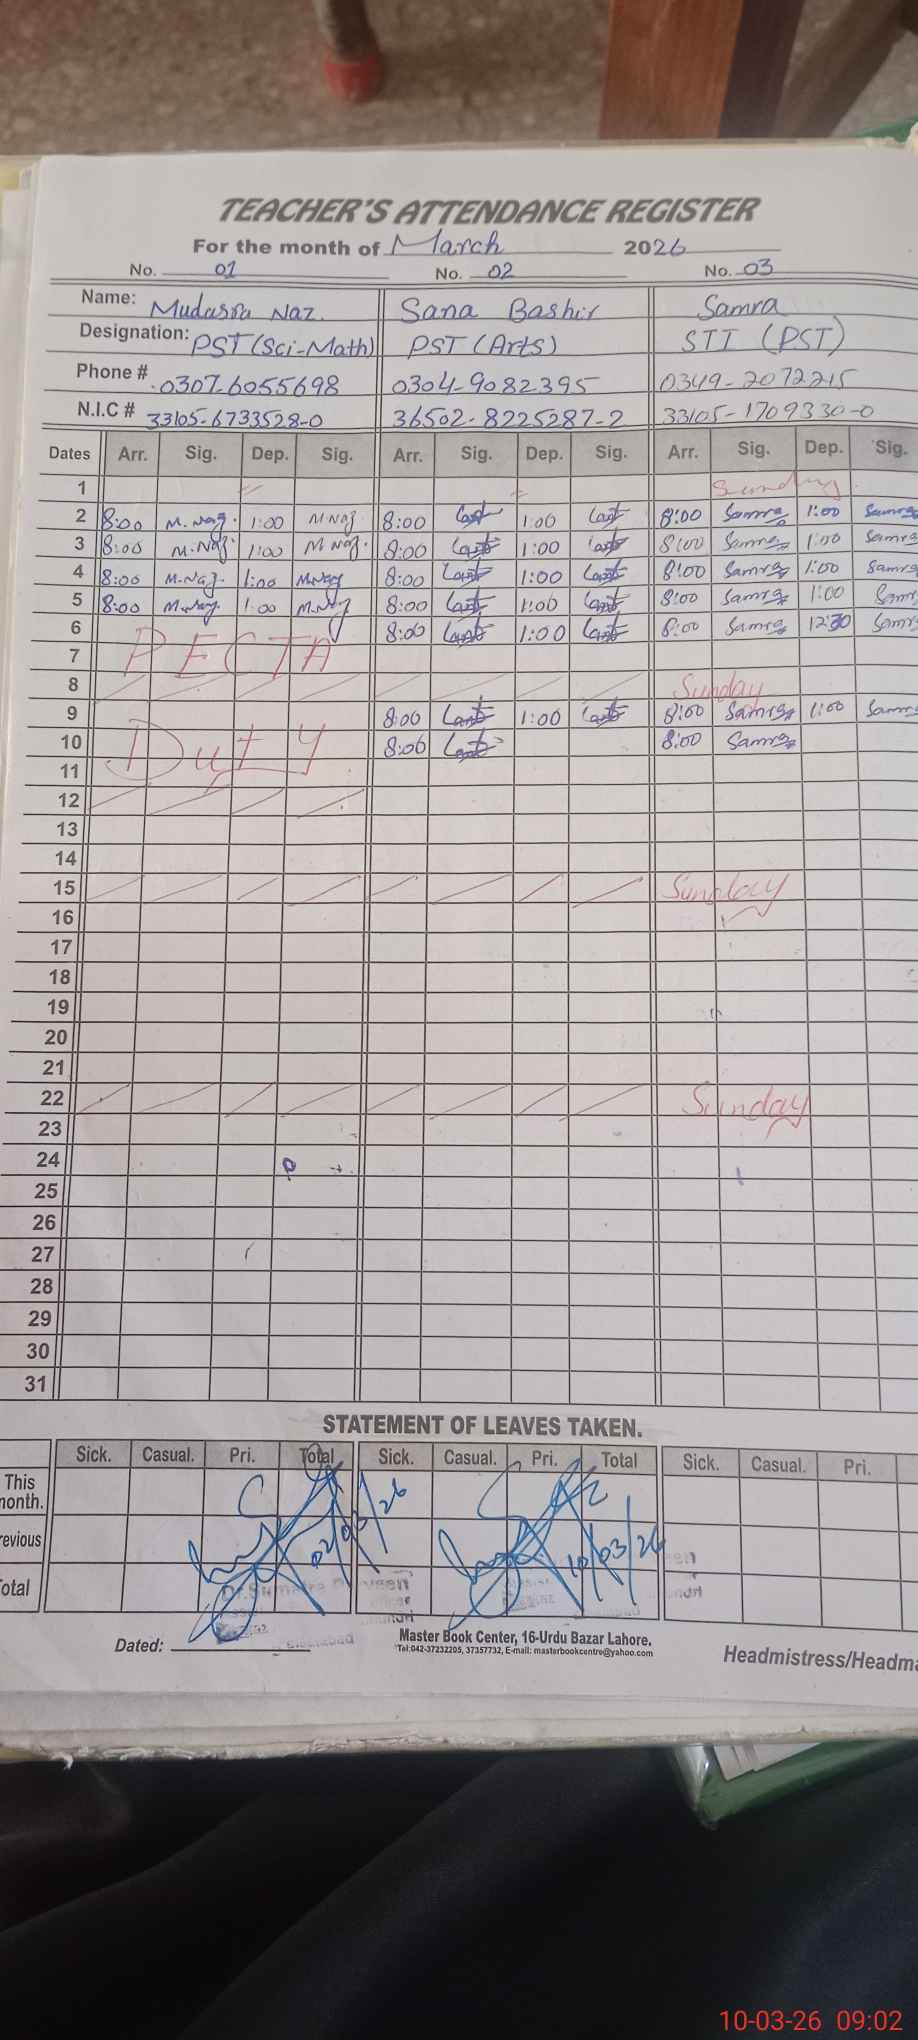 TEACHER'S ATTENDANCE REGISTER
For the month of March 2026
No. 01 No. 02 No. 03
Name: Mudassra Naz. Sana Bashir Samra
Designation: PST(Sci-Math) PST (Arts) STI (PST)
Phone # 0307-6055698 0304-9082395 0349-2072215
N.I.C # 33105-6733528-0 36502-8225287-2 33105-1709330-0
Dates Arr. Sig. Dep. Sig. Arr. Sig. Dep. Sig. Arr. Sig. Dep. Sig.
1 Sunday
2 8:00 M.Naz. 1:00 M Naz 8:00 1:00 8:00 Samra 1:00 Samra
3 8:00 M.Naz. 1:00 M Naz. 8:00 1:00 8:00 Samra 1:00 Samra
4 8:00 M.Naz. 1:00 M.Naz 8:00 1:00 8:00 Samra 1:00 Samra
5 8:00 M.Naz. 1:00 M.Naz 8:00 1:00 8:00 Samra 1:00 Samr
6 8:00 1:00 8:00 Samra 12:30 Samr
7 PECTA
8 Sunday
9 8:00 1:00 8:00 Samra 1:00 Samra
10 Duty 8:00 8:00 Samra
11
12
13
14
15 Sunday
16
17
18
19
20
21
22 Sunday
23
24
25
26
27
28
29
30
31
STATEMENT OF LEAVES TAKEN.
Sick. Casual. Pri. Total Sick. Casual. Pri. Total Sick. Casual. Pri.
This
month.
revious
otal
02/03/26 10/03/26
Dated:
Master Book Center, 16-Urdu Bazar Lahore.
Tel:042-37232205, 37357732, E-mail: masterbookcentre@yahoo.com
Headmistress/Headma
10-03-26 09:02